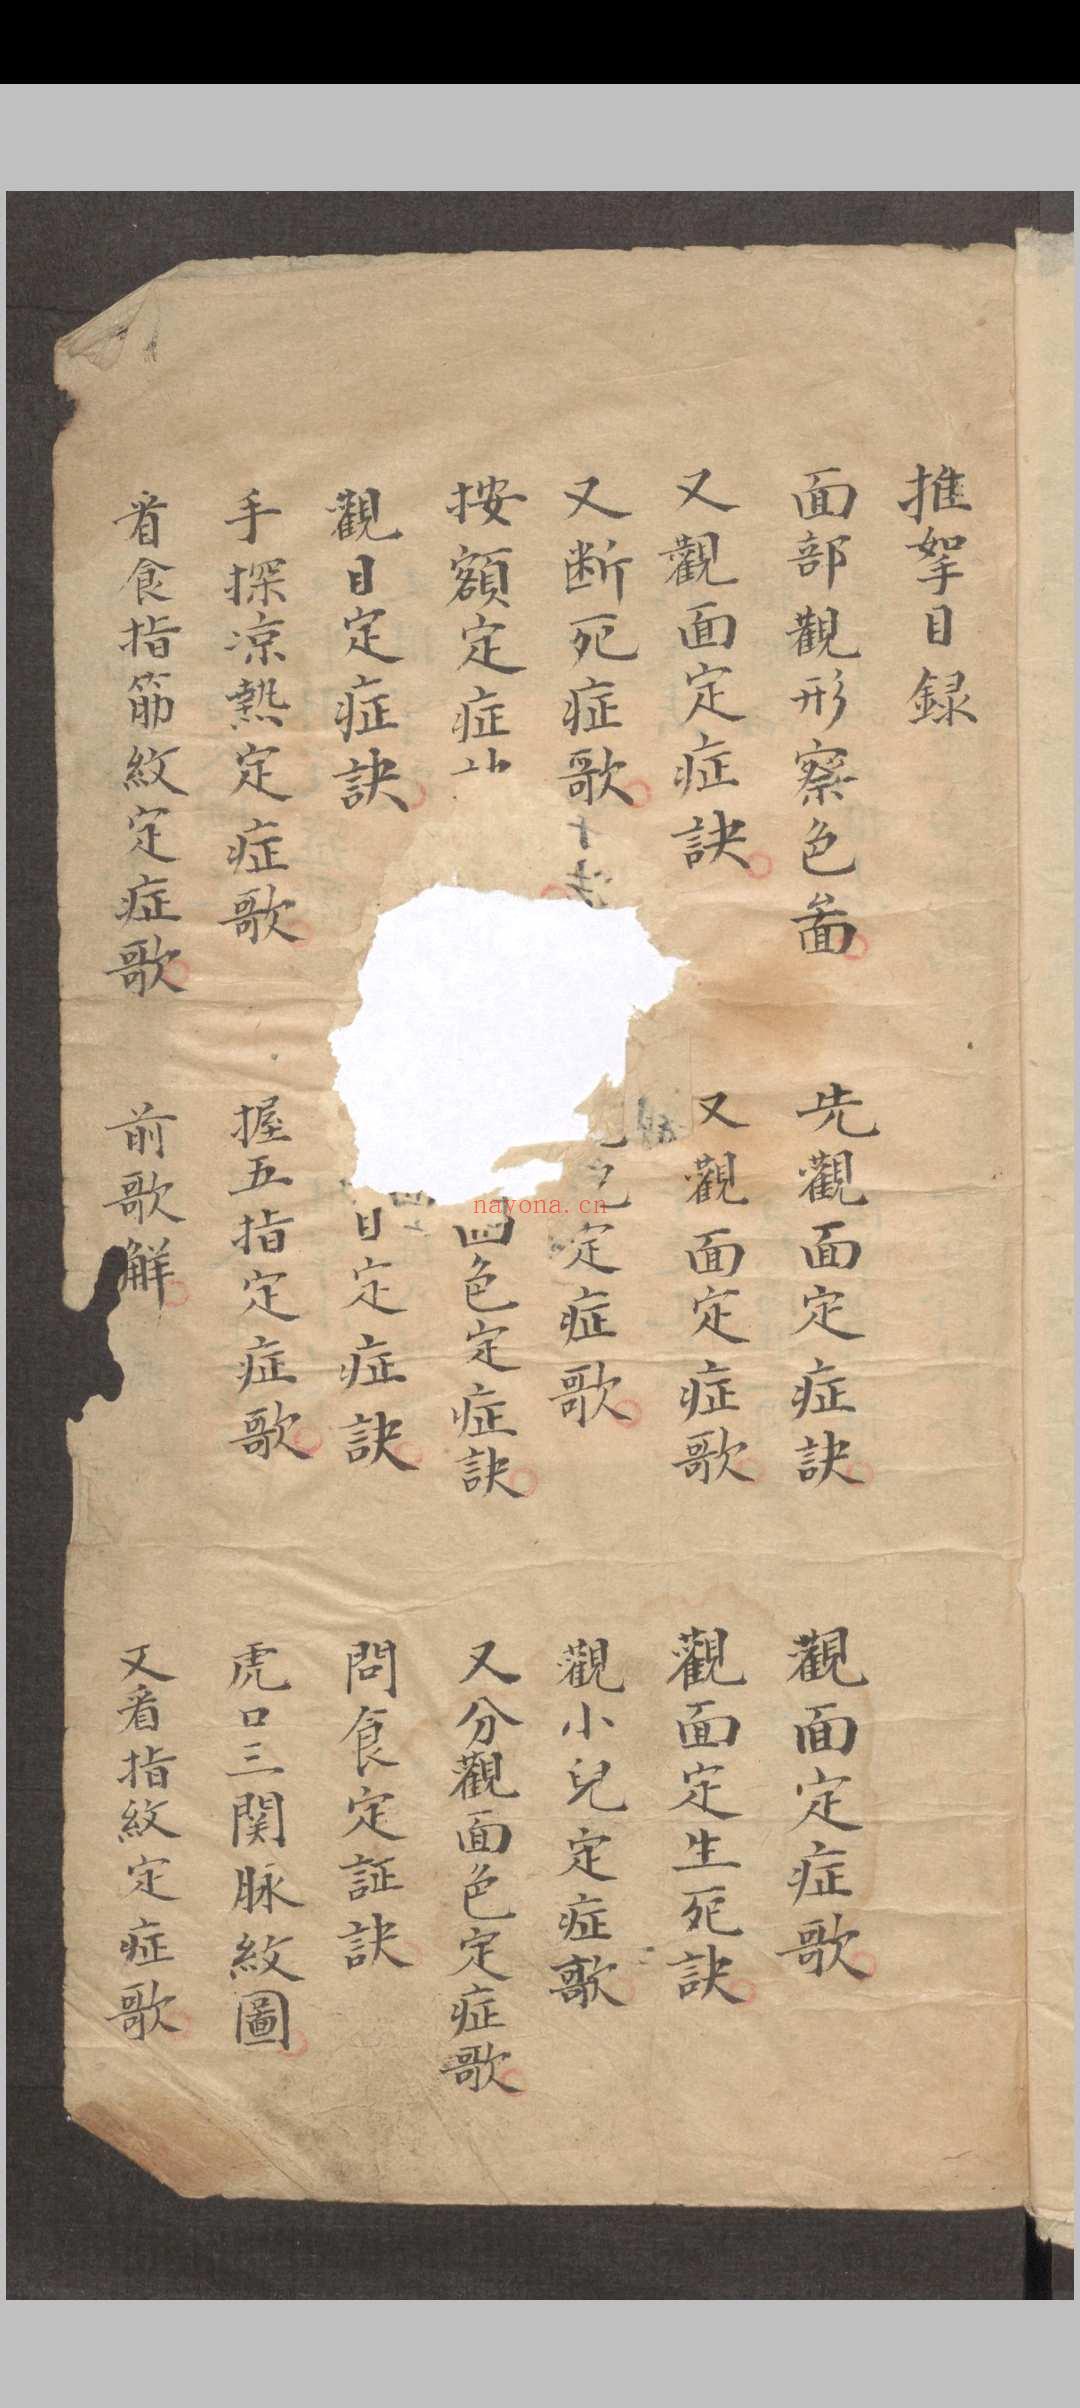 推拏目録
面部觀形察色啚 先觀面定症訣 觀面定症歌
又觀面定症訣 又觀面定症歌 觀面定生死訣
又断死症歌 定症歌 觀小兒定症歌
按額定症 四色定症訣 又分觀面色定症歌
觀目定症訣 目定症訣 問食定証訣
手探凉熱定症歌 握五指定症歌 虎口三関脉紋圖
看食指筋紋定症歌 前歌觧 又看指紋定症歌
nayona.cn